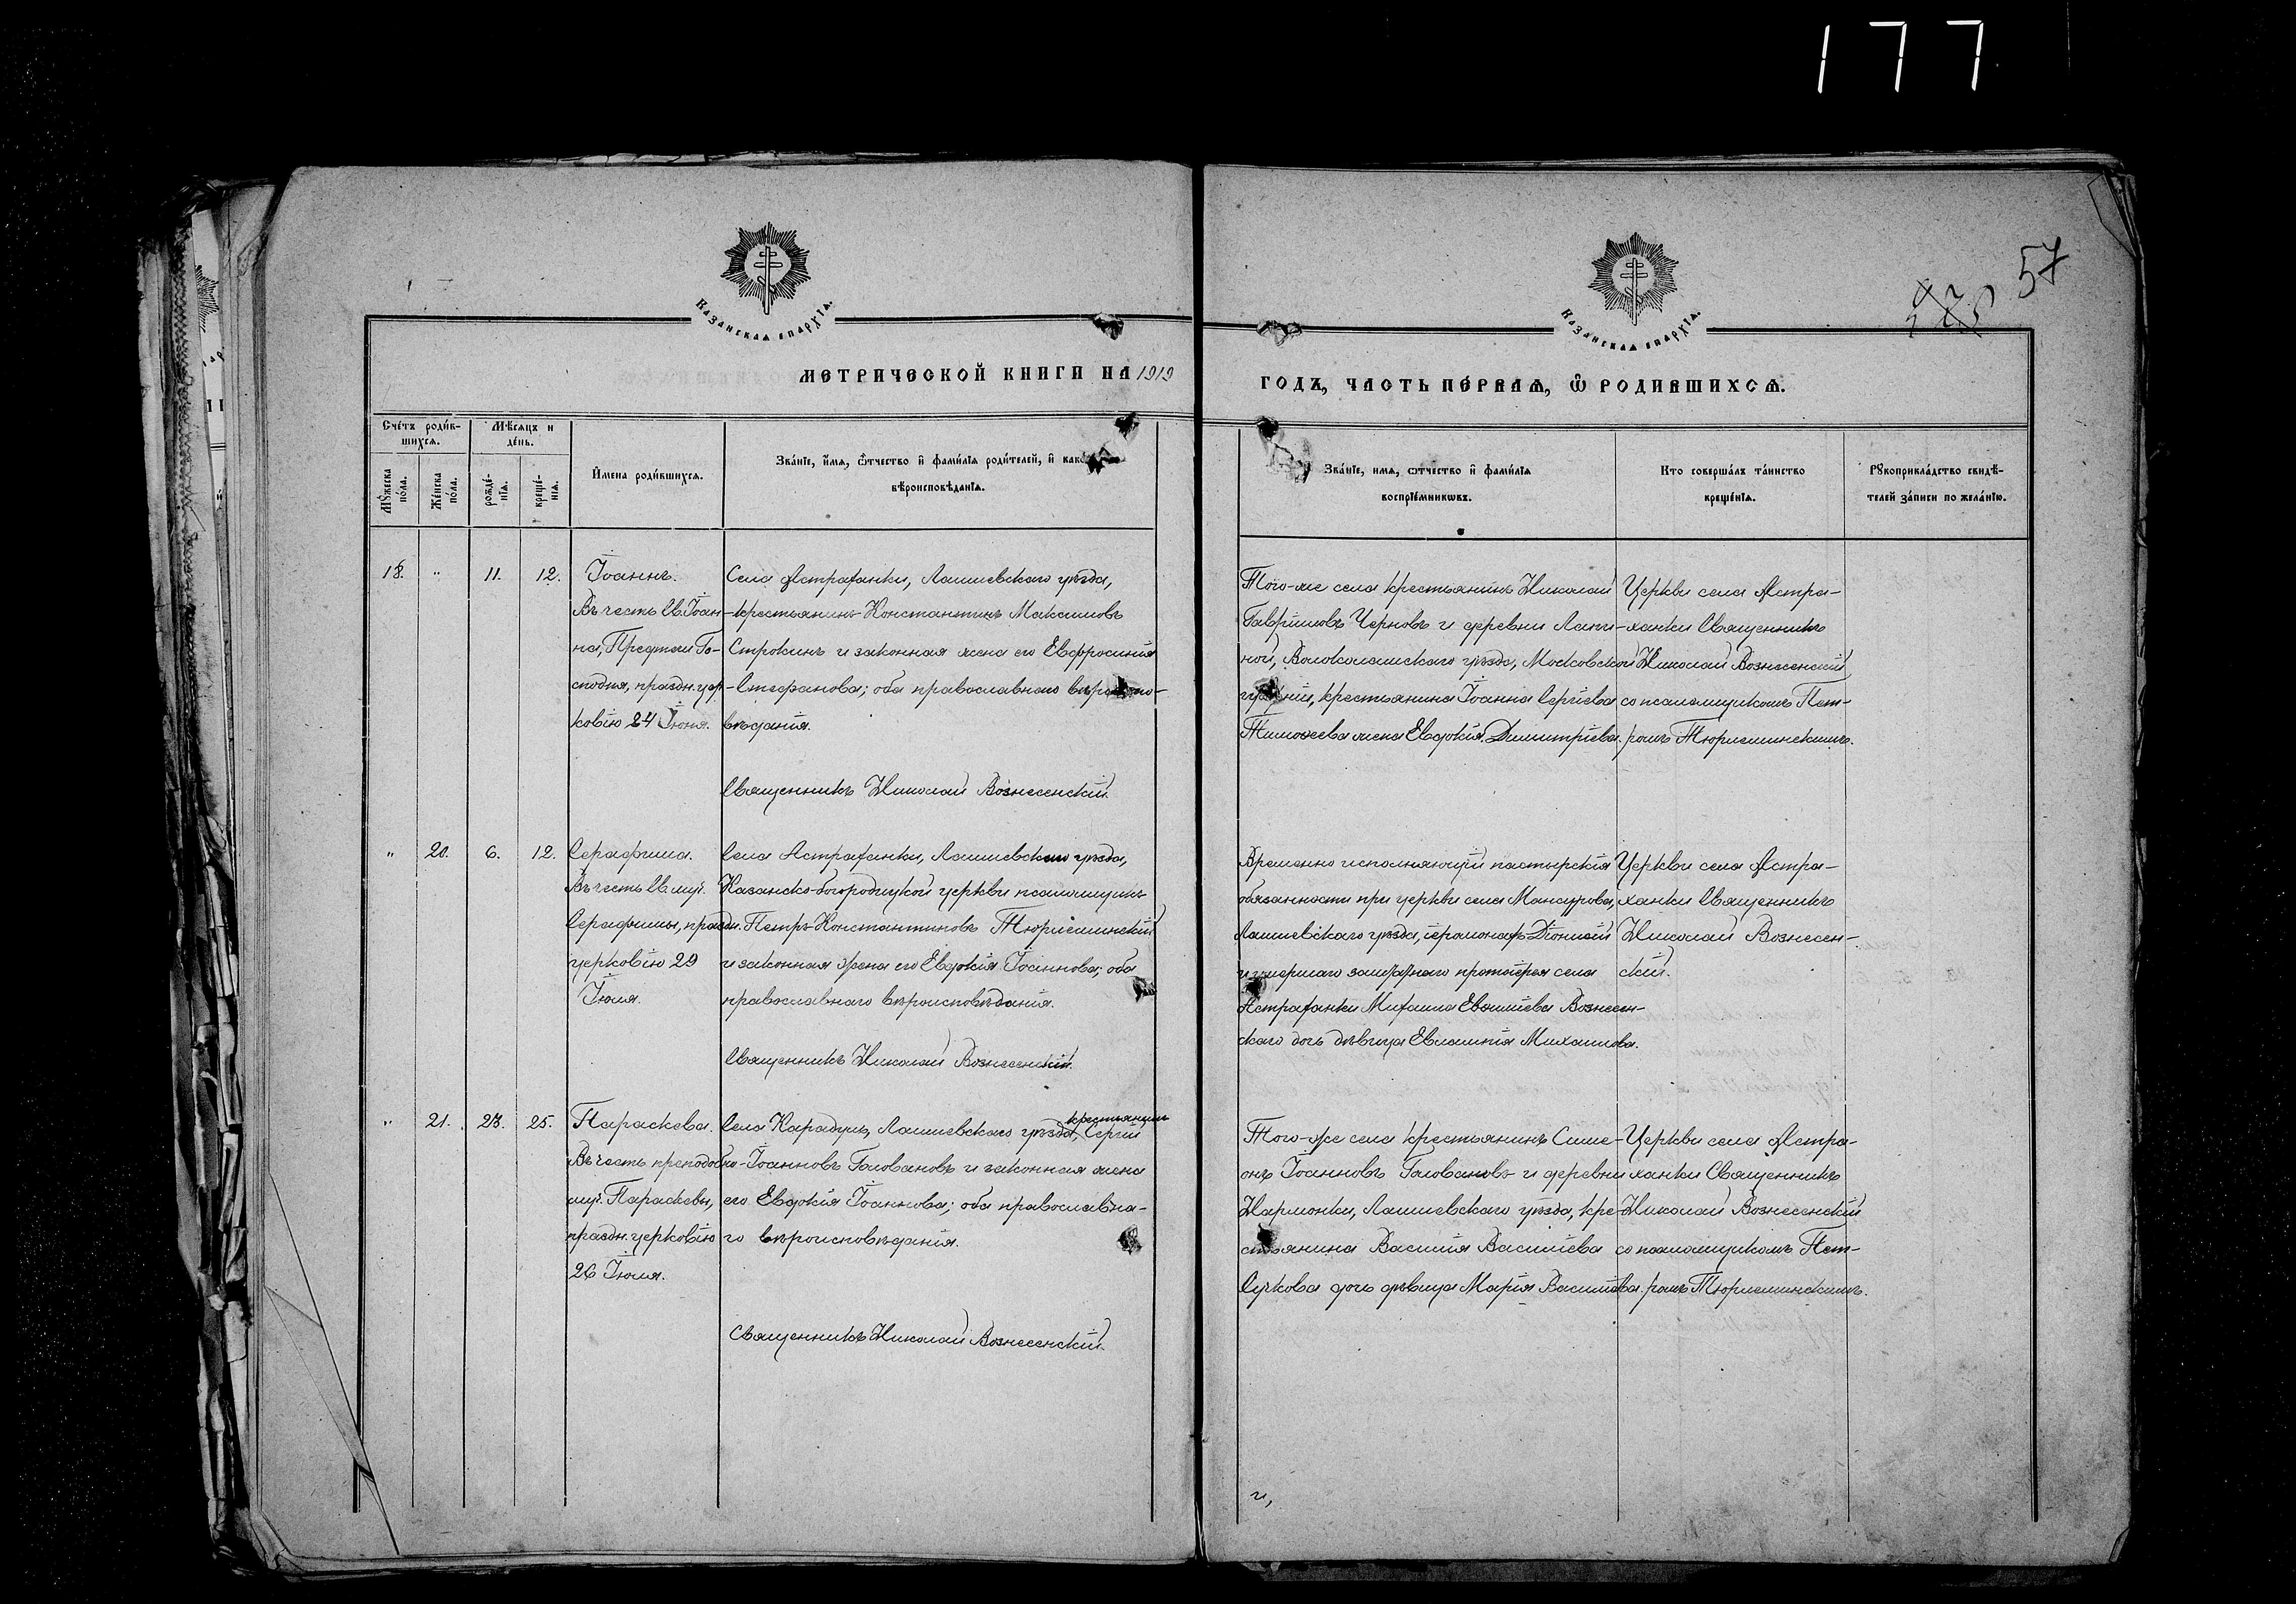 177
57
Казанская епархїя.
Казанская епархїя.
МЕТРИЧЕСКОЙ КНИГИ НА 1919
ГОДЪ, ЧАСТЬ ПЕ́РВАЯ, Ѽ РОДИВШИХСЯ.
Сче́тъ роди́в-
шихся.
Мѣ́сяцъ и
де́нь.
Мꙋ́жеска
по́ла.
Же́нска
по́ла.
рожде́-
нїя.
креще́-
нїя.
Имена роди́вшихся.
Зва́нїе, и́мя, ѻ҆́тчество и҆ фами́лїя роди́телей, и҆ како
вѣроисповѣ́данїя.
Зва́нїе, имя, ѻтчество и҆ фами́лїя
воспрїе́мникѡвъ.
Кто соверша́лъ та́инство
креще́нїя.
Рꙋкоприкла́дство свидѣ́-
телей за́писи по жела́нїю.
18. " 11. 12.
Іоаннъ.
Въ честь Св. Іоан-
на, Предтечи Го-
сподня, праздн. цер-
ковію 24 Іюня.
Села Астраханки, Лаишевскаго уѣзда,
крестьянинъ Константинъ Максимовъ
Строкинъ и законная жена его Евфросинія
Стефанова; обα православнаго вѣроиспо-
вѣданія.
Священникъ Николай Вознесенскій.
Того-же села крестьянинъ Николай
Гавриловъ Черновъ и деревни Лапи-
ной, Волоколамскаго уѣзда, Московской
губерніи, крестьянина Іоанна Сергіева
Тимоѳеева жена Евдокія Димитріева.
Церкви села Астра-
ханки Священникъ
Николай Вознесенскій
со псаломщикомъ Пет-
ромъ Тюрлеминскимъ.
" 20. 6. 12.
Серафима.
Въ честь Св. муч.
Серафимы, праздн.
церковію 29
Іюля.
Села Астраханки, Лаишевскаго уѣзда,
Казанско-богородицкой церкви псаломщикъ
Петръ Константиновъ Тюрлеминскій
и законная жена его Евдокія Іоаннова; оба
православнаго вѣроисповѣданія.
Священникъ Николай Вознесенскій.
Временно исполняющій пастырскія
обязанности при церкви села Мансурова,
Лаишевскаго уѣзда, іеромонахъ Діонисій
и умершаго заштатнаго протоіерея села
Астраханки Михаила Вознесен-
скаго дочь дѣвица Евлампія Михаилова.
Церкви села Астра-
ханки Священникъ
Николай Вознесен-
скій.
" 21. 23. 25.
Параскева.
Въ честь преподобно-
муч. Параскевы,
праздн. церковію
26 Іюля.
крестьянинъ
Села Карадули, Лаишевскаго уѣзда, Сергій
Іоанновъ Головановъ и законная жена
его Евдокія Іоаннова; оба православна-
го вѣроисповѣданія.
Священникъ Николай Вознесенскій.
Того-же села крестьянинъ Симе-
онъ Іоанновъ Головановъ и деревни
Нармонки, Лаишевскаго уѣзда, кре-
стьянина Василія Василіева
Сучкова дочь дѣвица Марія Василіева.
Церкви села Астра-
ханки Священникъ
Николай Вознесенскій
со псаломщикомъ Пет-
ромъ Тюрлеминскимъ.